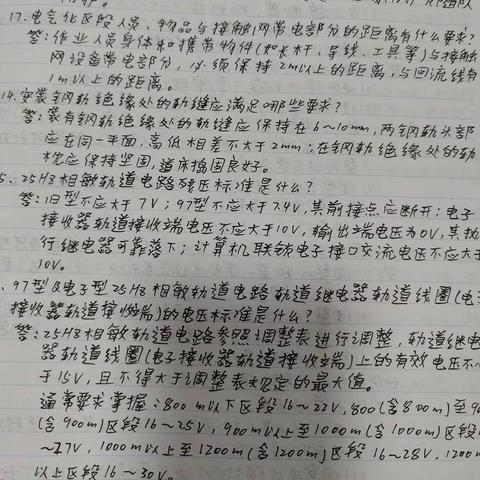 17.电气化区段人员、物品与接触网带电部分的距离有什么要求?
答:作业人员身体和携带物件(如长杆、导线、工具等)与接触
网设备带电部分,必须保持2m以上的距离,与回流线有
1m以上的距离。
14.安装钢轨绝缘处的轨缝应满足哪些要求?
答:装有钢轨绝缘处的轨缝应保持在6~10mm,两钢轨头部
应在同一平面,高低相差不大于2mm;在钢轨绝缘处的轨
枕应保持坚固,道床捣固良好。
5.25Hz相敏轨道电路残压标准是什么?
答:旧型不应大于7V;97型不应大于7.4V,其前接点应断开;电子
接收器轨道接收端电压不应大于10V,输出端电压为0V,其执
行继电器可靠落下;计算机联锁电子接口交流电压不应大于
10V。
.97型及电子型25Hz相敏轨道电路轨道继电器轨道线圈(电子
接收器轨道接收端)的电压标准是什么?
答:25Hz相敏轨道电路参照调整表进行调整,轨道继电
器轨道线圈(电子接收器轨道接收端)上的有效电压不小
于15V,且不得大于调整表规定的最大值。
通常要求掌握:800m以下区段16~22V,800(含800m)至9
(含900m)区段16~25V,900m以上至1000m(含1000m)区段
~27V,1000m以上至1200m(含1200m)区段16~28V,1200m
以上区段16~30V。